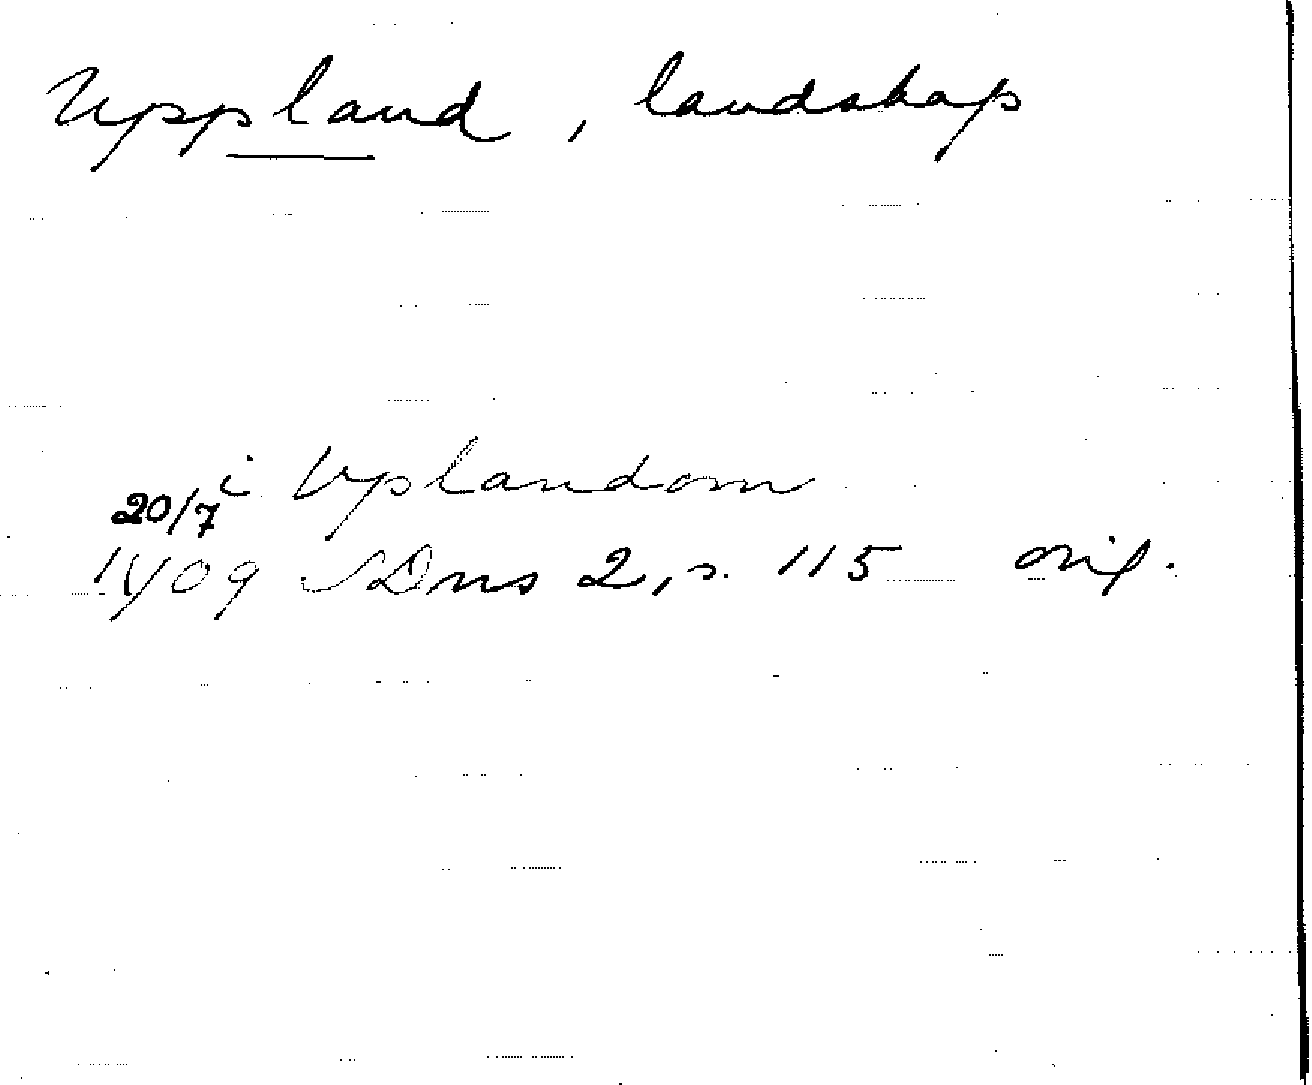 Uppland, landskap
i Vplandom
20/7
1409 SDns 2, s. 115 orig.